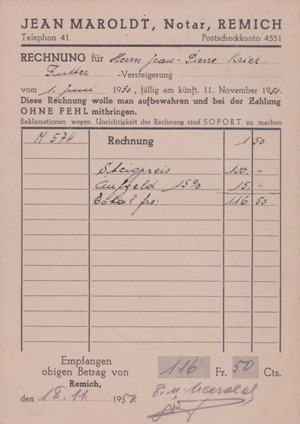 JEAN MAROLDT, Notar, REMICH
Telephon 41 Postscheckkonto 4551
RECHNUNG für Herrn Jean-Pierre Krier
Futter -Versteigerung
vom 1. Juni 1950, fällig am künft. 11. November 1950.
Diese Rechnung wolle man aufbewahren und bei der Zahlung
OHNE FEHL mitbringen.
Reklamationen wegen Unrichtigkeit der Rechnung sind SOFORT zu machen
M 574 Rechnung 1 50
Steigpreis 100.-
Aufgeld 15% 15.-
Total frs: 116 50
Empfangen
obigen Betrag von 116 Fr. 50 Cts.
Remich,
den 18.11. 1950